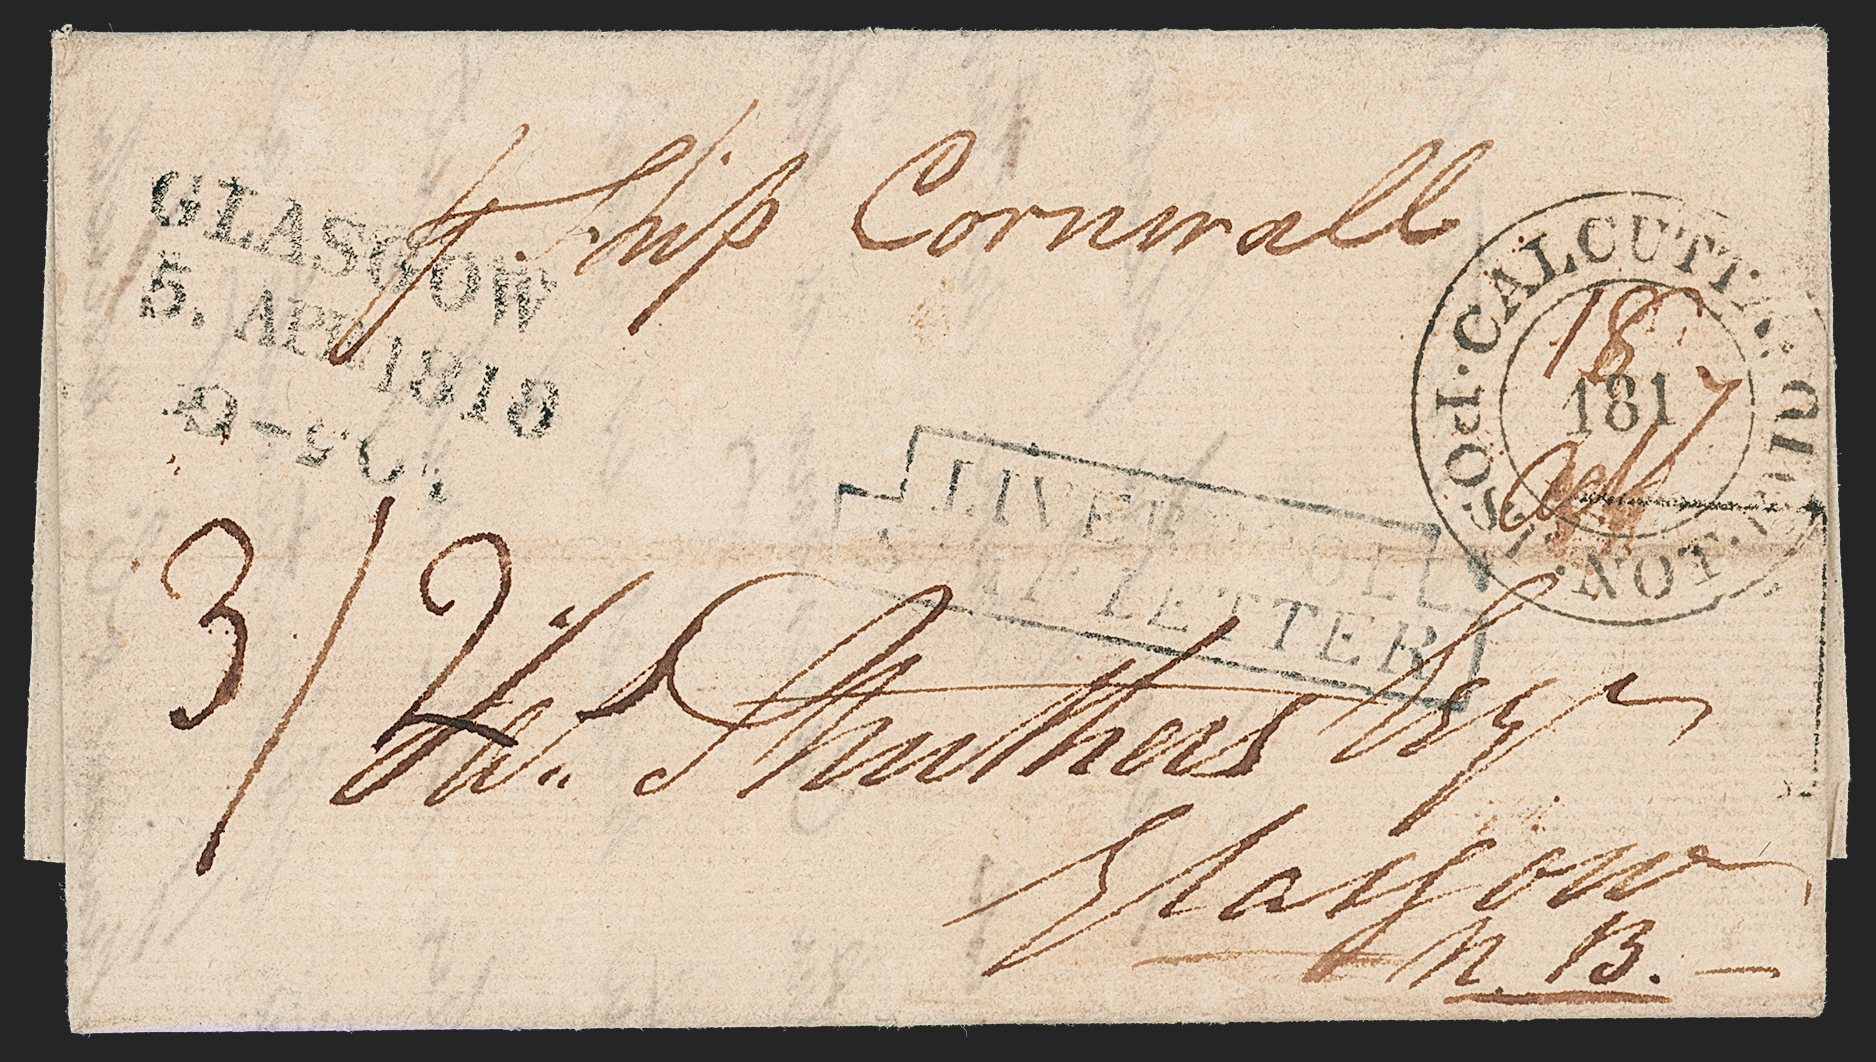 GLASGOW
5. APR 1818
pr Ship Cornwall
CALCUTTA
SHIP. POST. NOT. PAID
18
1817
Oct
LIVERPOOL
SHIP LETTER
3/2
Wm. Struthers Esqr
Glasgow
N. B. —